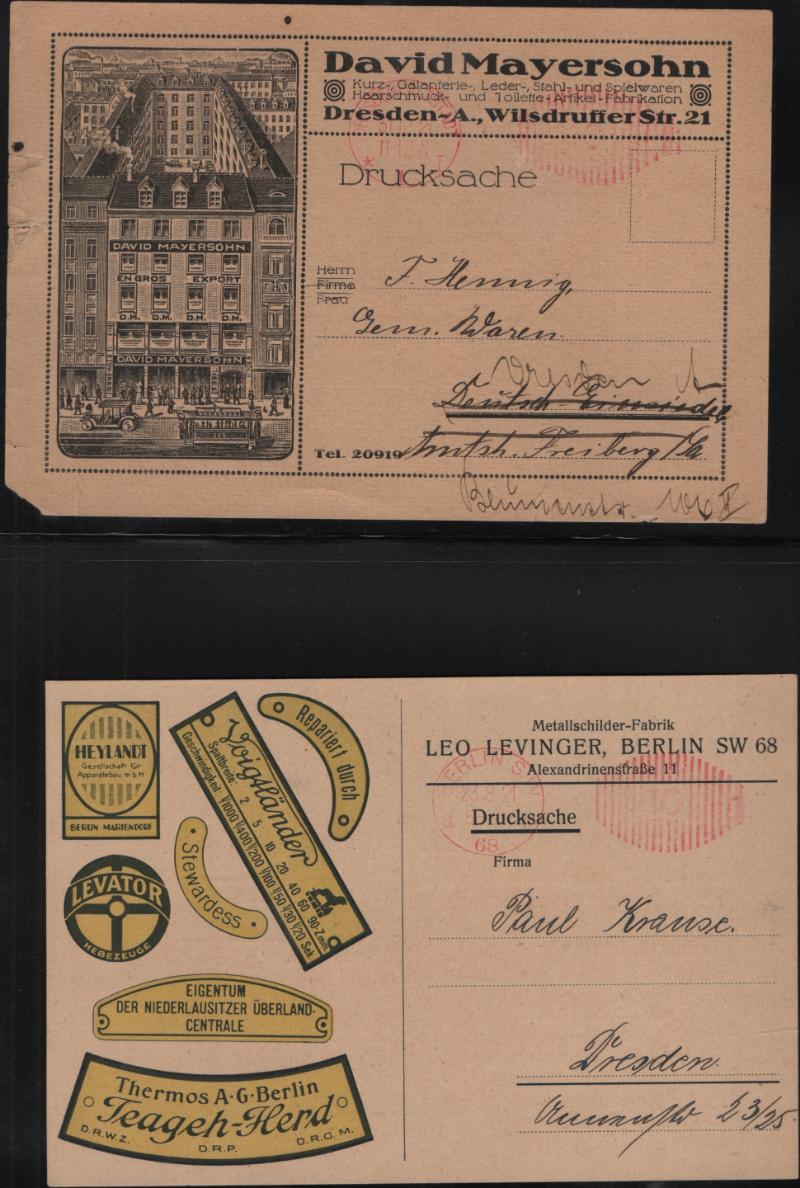 David Mayersohn
Kurz-, Galanterie-, Leder-, Stahl- und Spielwaren
Haarschmuck- und Toilette-Artikel-Fabrikation
Dresden-A., Wilsdruffer Str. 21
Drucksache
DAVID MAYERSOHN
EN GROS EXPORT
D.M. D.M. D.M. D.M.
DAVID MAYERSOHN
Herrn
Firma
Frau
F. Hennig,
Gem. Waren
Dresden A
Deutsch-Einsiedel
Amtsh. Freiberg i/Sa
Tel. 20919
Blumenstr. 106 II
Metallschilder-Fabrik
LEO LEVINGER, BERLIN SW 68
Alexandrinenstraße 11
BERLIN SW
23.8.21
68
Drucksache
Firma
Paul Krause.
Dresden.
Annenstr 23/25
HEYLANDT
Gesellschaft für
Apparatebau m b H
BERLIN-MARIENDORF
Voigtländer
Spaltbreite: 2 5 10 20 40 60 90-Zmm.
Geschwindigkeit 1/1000 1/400 1/200 1/100 1/50 1/30 1/20 Sek.
Repariert durch
Stewardess
LEVATOR
HEBEZEUGE
EIGENTUM
DER NIEDERLAUSITZER ÜBERLAND-
CENTRALE
Thermos A·G·Berlin
Teageh-Herd
D.R.W.Z.
D.R.P.
D.R.G.M.